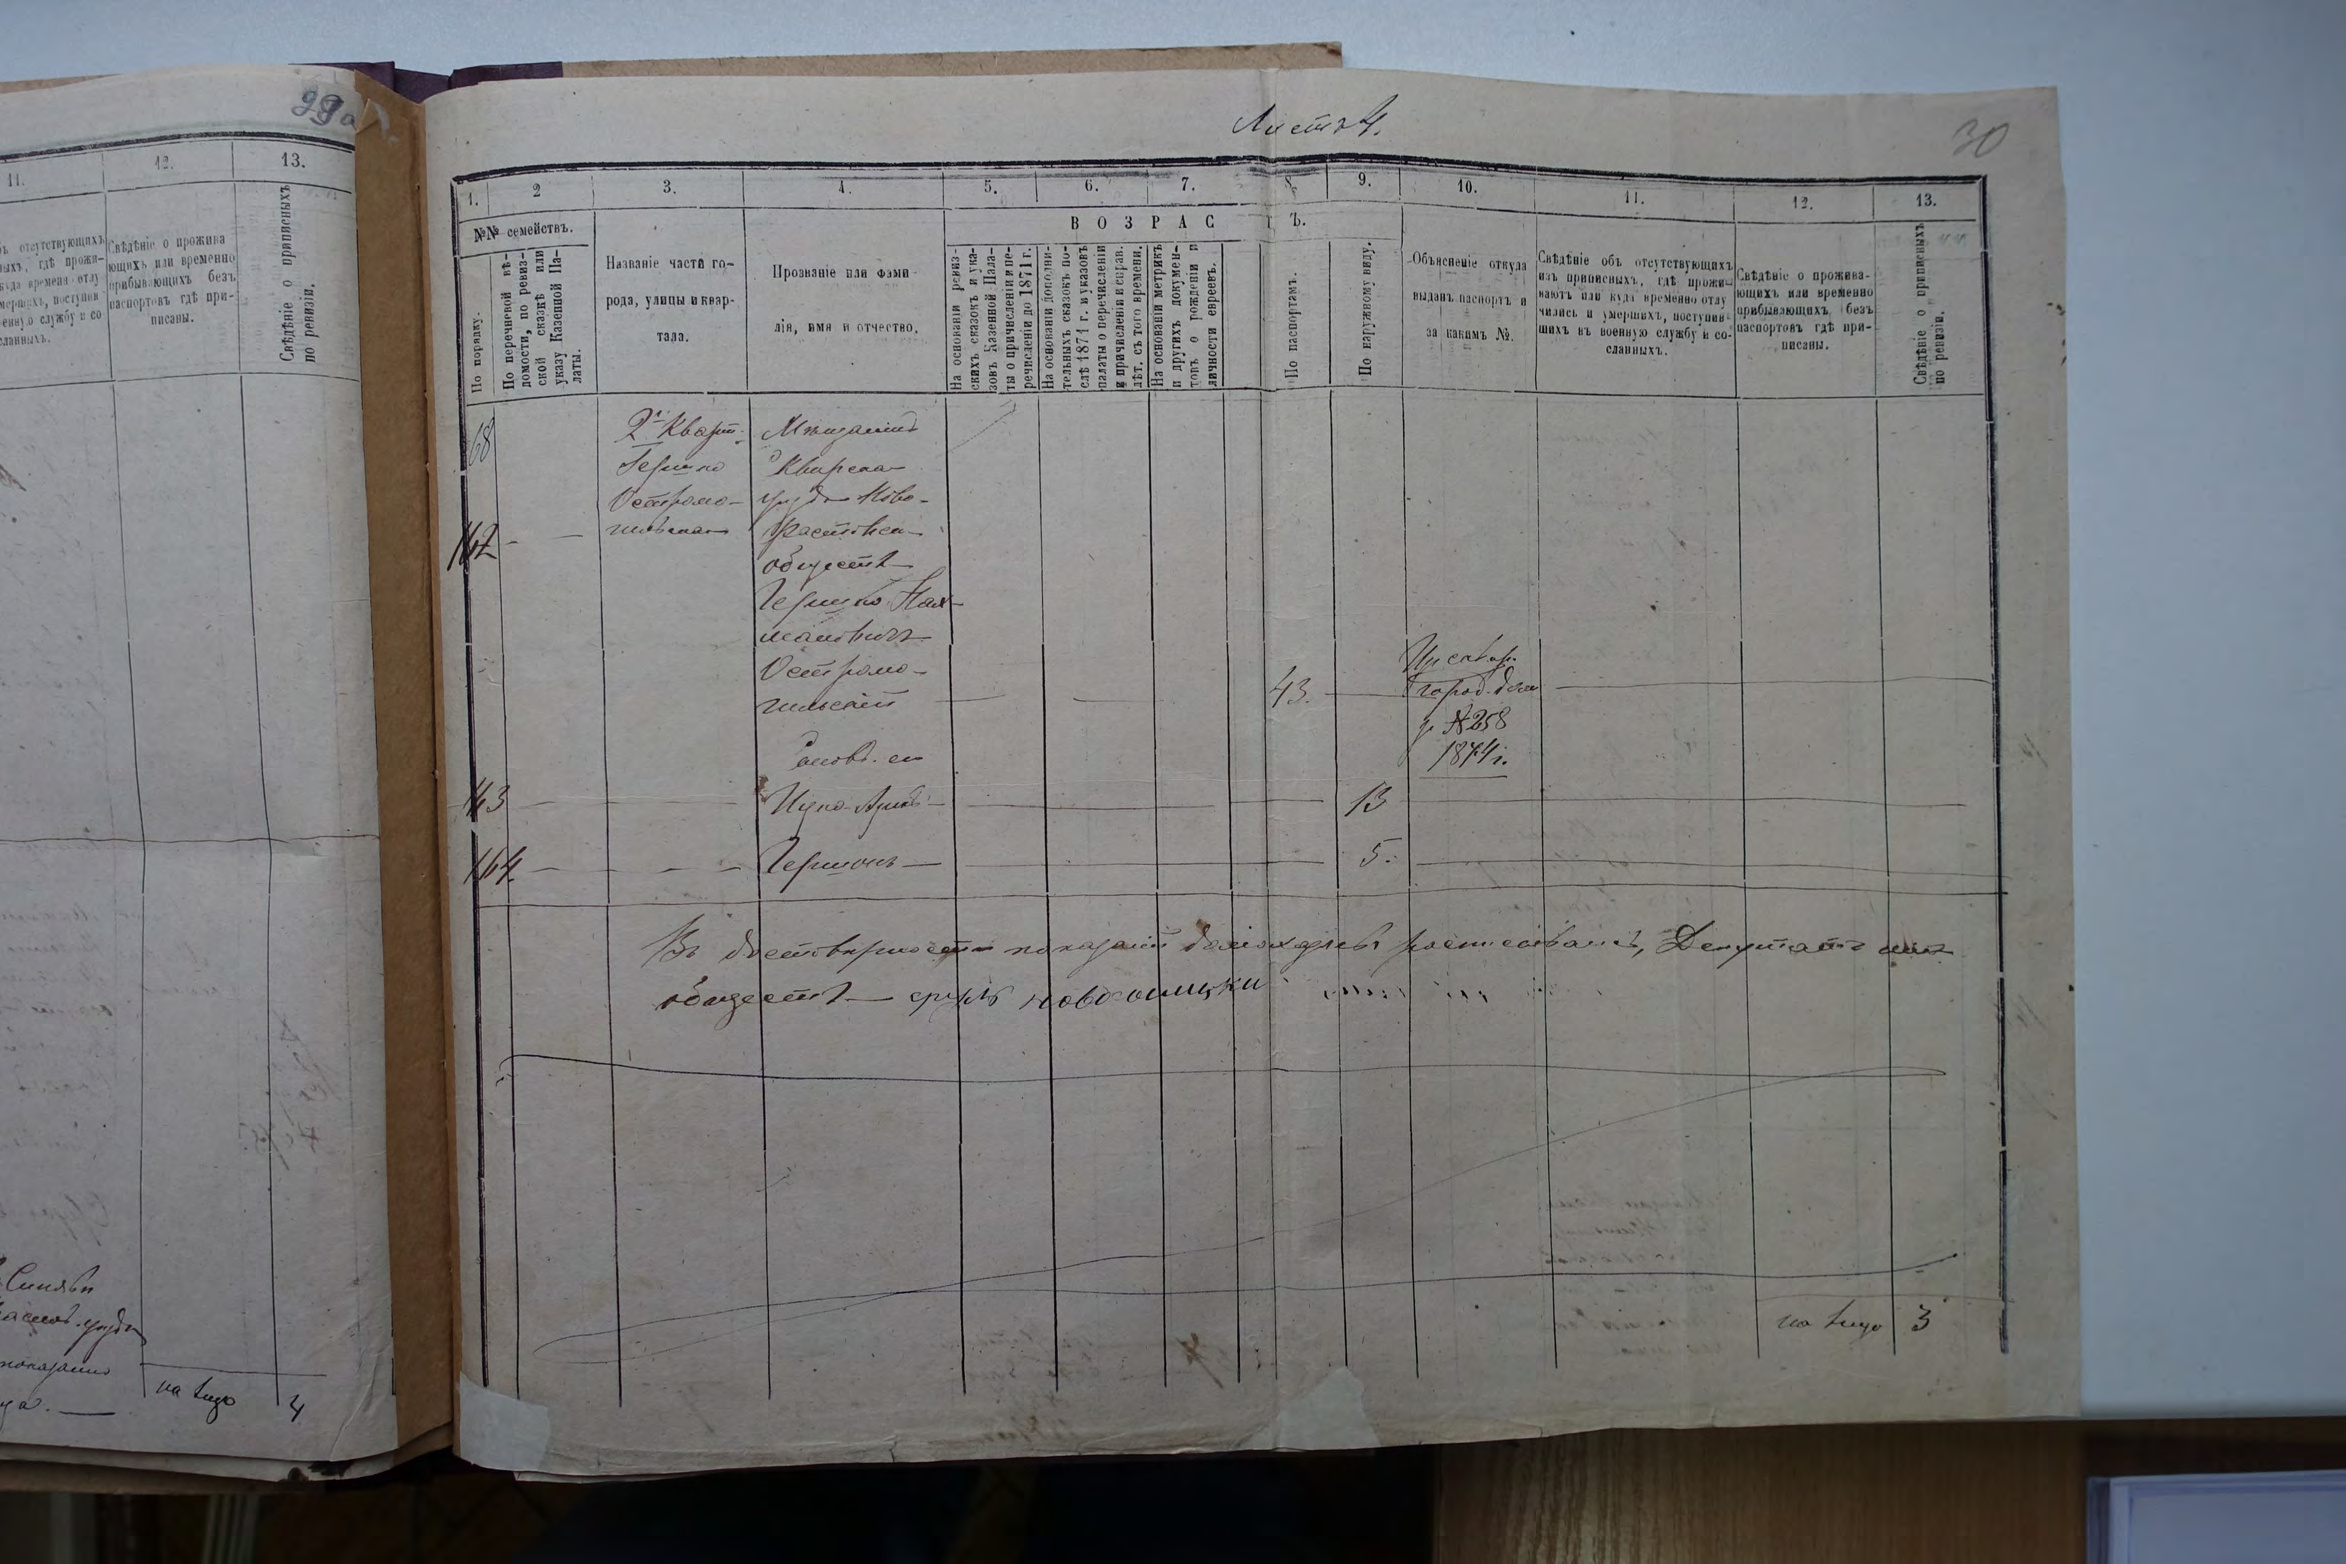 29а
11.
12.
13.
ъ отсутствующихъ
ныхъ, гдѣ прожи-
куда временно отлу
умершихъ, поступив
военную службу и со
сланныхъ.
Свѣдѣніе о прожива
ющихъ или временно
прибывающихъ безъ
паспортовъ гдѣ при-
писаны.
Свѣдѣніе о приписныхъ
по ревизіи.
показанію
на лицо
4
Листъ 4.
30
1.
2
3.
4.
5.
6.
7.
8.
9.
10.
11.
12.
13.
№№ семействъ.
По порядку.
По перечневой вѣ-
домости, по ревиз-
ской сказкѣ или
указу Казенной Па-
латы.
Названіе части го-
рода, улицы и квар-
тала.
Прозваніе или фами-
лія, имя и отчество.
ВОЗРАСТЪ.
На основаніи ревиз-
скихъ сказокъ и ука-
зовъ Казенной Пала-
ты о причисленіи и пе-
речисленіи до 1871 г.
На основаніи дополни-
тельныхъ сказокъ по-
слѣ 1871 г. и указовъ
палаты о перечисленіи
и причисленіи и справ.
лѣт. съ того времени.
На основаніи метрикъ
и другихъ докумен-
товъ о рожденіи и
личности евреевъ.
По паспортамъ.
По наружному виду.
Объясненіе откуда
выданъ паспортъ и
за какимъ №.
Свѣдѣніе объ отсутствующихъ
изъ приписныхъ, гдѣ прожи-
ваютъ или куда временно отлу
чились и умершихъ, поступив-
шихъ въ военную службу и со-
сланныхъ.
Свѣдѣніе о прожива-
ющихъ или временно
прибывающихъ безъ
паспортовъ гдѣ при-
писаны.
Свѣдѣніе о приписныхъ
по ревизіи.
68
2й Кварт.
Мѣщанинъ
Гершко
Сквирска
Остромо-
уѣзда Ново-
162
гильскаго
Фастовск
обществ
Гершко Нах-
мановичъ
Остромо-
гильскій
43.
город. дом
№ 258
1874 г.
Сыновья его
163
Ицко-
13
164
Гершонъ
5.
Въ достовѣрности показаній росписываюсь, Депутатъ мѣщ
обществ сруль новосилцки
на лицо
3